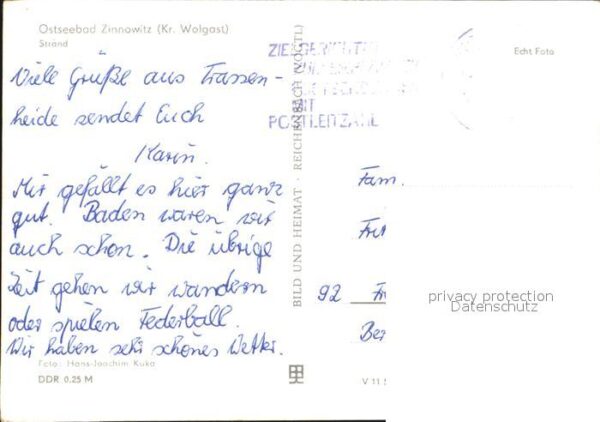 Ostseebad Zinnowitz (Kr. Wolgast)
Strand
Viele Grüße aus Trassen-
heide sendet Euch
Karin.
Mir gefällt es hier ganz
gut. Baden waren wir
auch schon. Die übrige
Zeit gehen wir wandern
oder spielen Federball.
Wir haben sehr schönes Wetter.
Foto: Hans-Joachim Kuka
DDR 0.25 M
BILD UND HEIMAT · REICHENBACH (VOGTL)
MIT
POSTLEITZAHL
Echt Foto
Fam.
92
V 11
privacy protection
Datenschutz